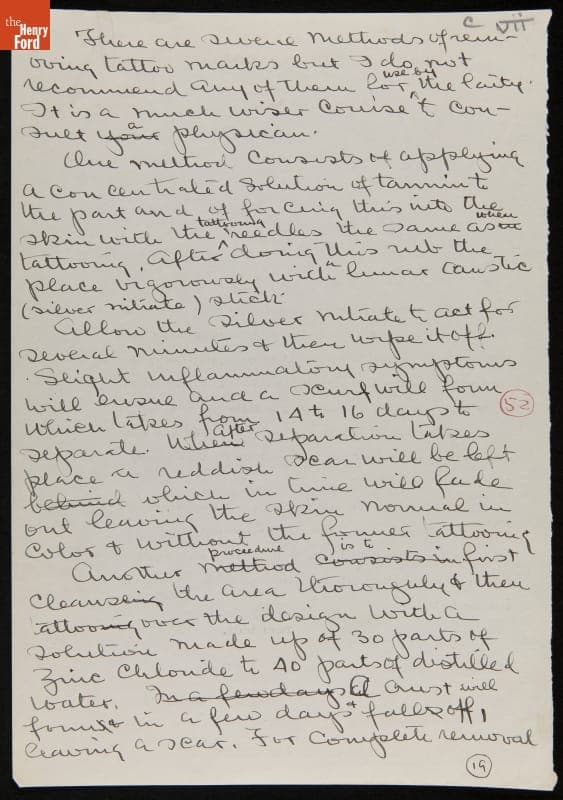 the
Henry
Ford
C VII
There are severe methods of rem-
oving tattoo marks but I do not
recommend any of them for use by the laity.
It is a much wiser course to con-
sult your a physican.
One method consists of applying
a concentrated solution of tannin to
the part and of forcing this into the
skin with the tattooing needles the same as in when
tattooing. After doing this rub the
place vigorously with a lunar caustic
(silver nitrate) stick.
Allow the silver nitrate to act for
several minutes & then wipe it off.
Slight inflammatory symptoms
will ensue and a scurf will form
which takes from 14 to 16 days to
52
separate. When after separation takes
place a reddish scar will be left
behind which in time will fade
out leaving the skin normal in
color & without the former tattooing
Another method procedure consists in is to first
cleansing the area thoroughly & then
tattooing over the design with a
solution made up of 30 parts of
Zinc Chloride to 40 parts of distilled
water. In a few days A crust will
form & in a few days falls off,
leaving a scar. For complete removal
19